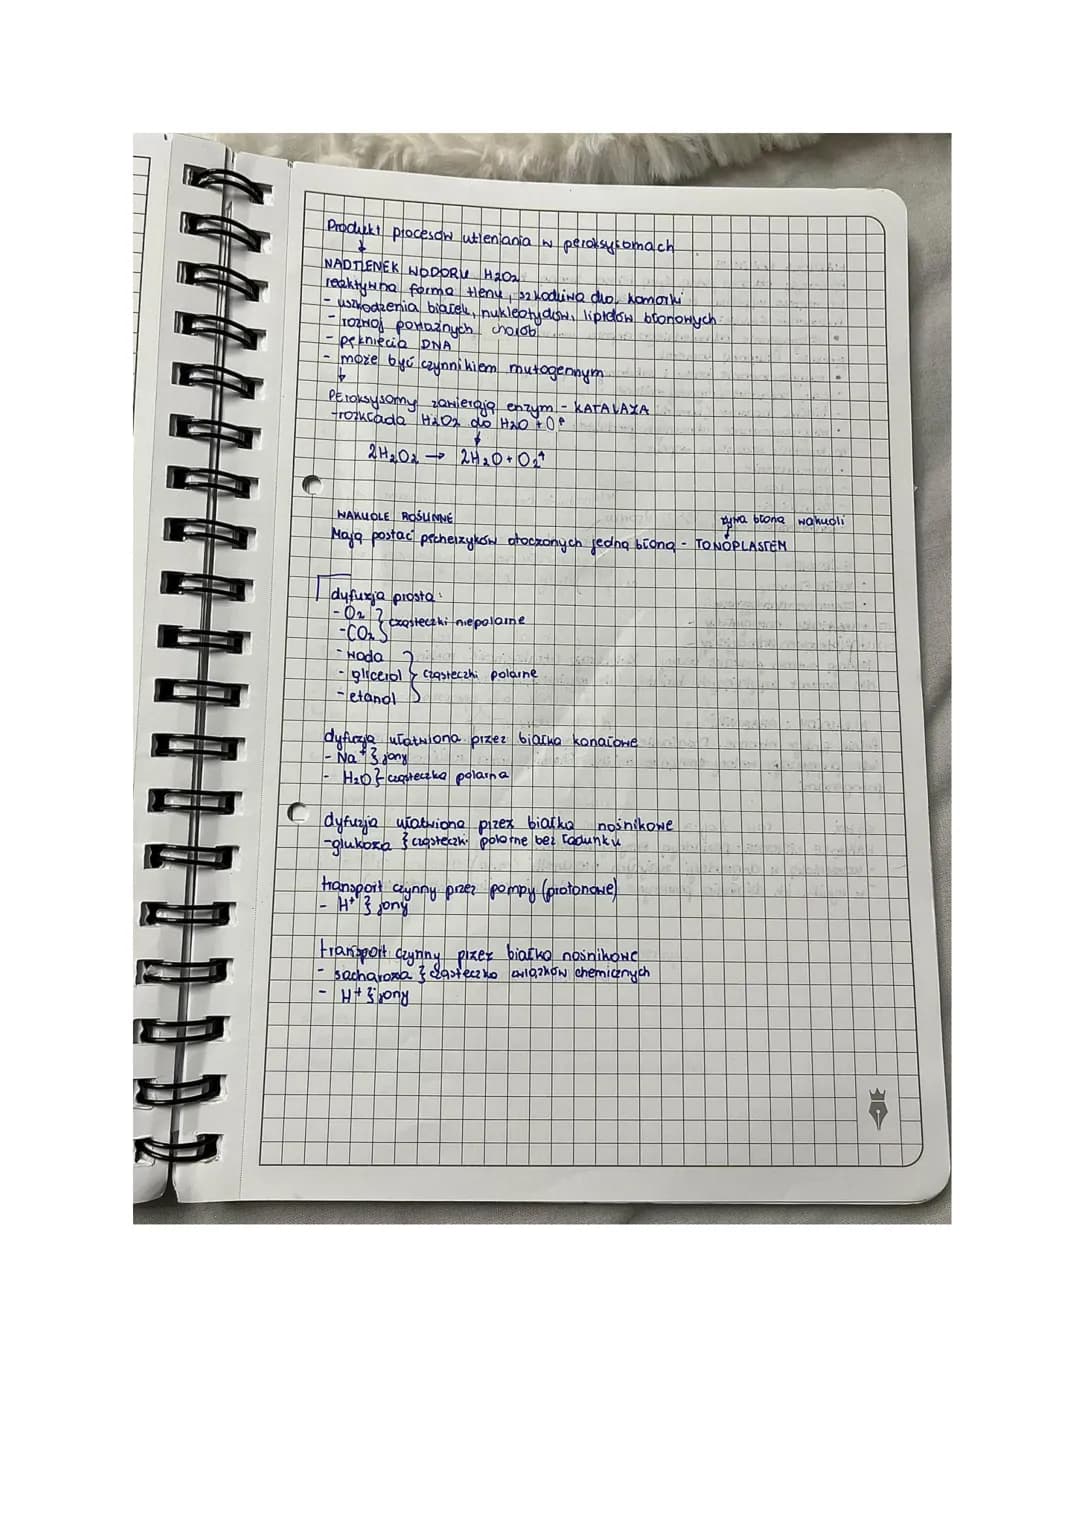 Produkt procesów utleniania w peroksysomach
↓
NADTLENEK WODORU H2O2
reaktywna forma tlenu, szkodliwa dla komórki
- uszkodzenia białek, nukleotydów, lipidów błonowych
- rozwój poważnych chorób
- pęknięcia DNA
- może być czynnikiem mutogennym
↓
Peroksysomy zawierają enzym - KATALAZA
-rozkłada H2O2 do H2O + O2
↓
2H2O2 → 2H2O + O2↑
WAKUOLE ROŚLINNE
żywa błona wakuoli
Mają postać pęcherzyków otoczonych jedną błoną - TONOPLASTEM
dyfuzja prosta:
- O2 } cząsteczki niepolarne
- CO2
- woda
- glicerol } cząsteczki polarne
- etanol
dyfuzja ułatwiona przez białka kanałowe
- Na+ } jony
- H2O } cząsteczka polarna
dyfuzja ułatwiona przez białka nośnikowe
- glukoza } cząsteczki polarne bez ładunku
transport czynny przez pompy (protonowe)
- H+ } jony
transport czynny przez białka nośnikowe
- sacharoza } cząsteczka związków chemicznych
- H+ } jony